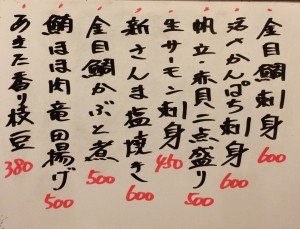 金目鯛刺身 600
活〆かんぱち刺身 600
帆立・赤貝二点盛り 500
生サーモン刺身 450
新さんま塩焼き 600
金目鯛かぶと煮 500
鮪ほほ肉竜田揚げ 500
あきた香り枝豆 380